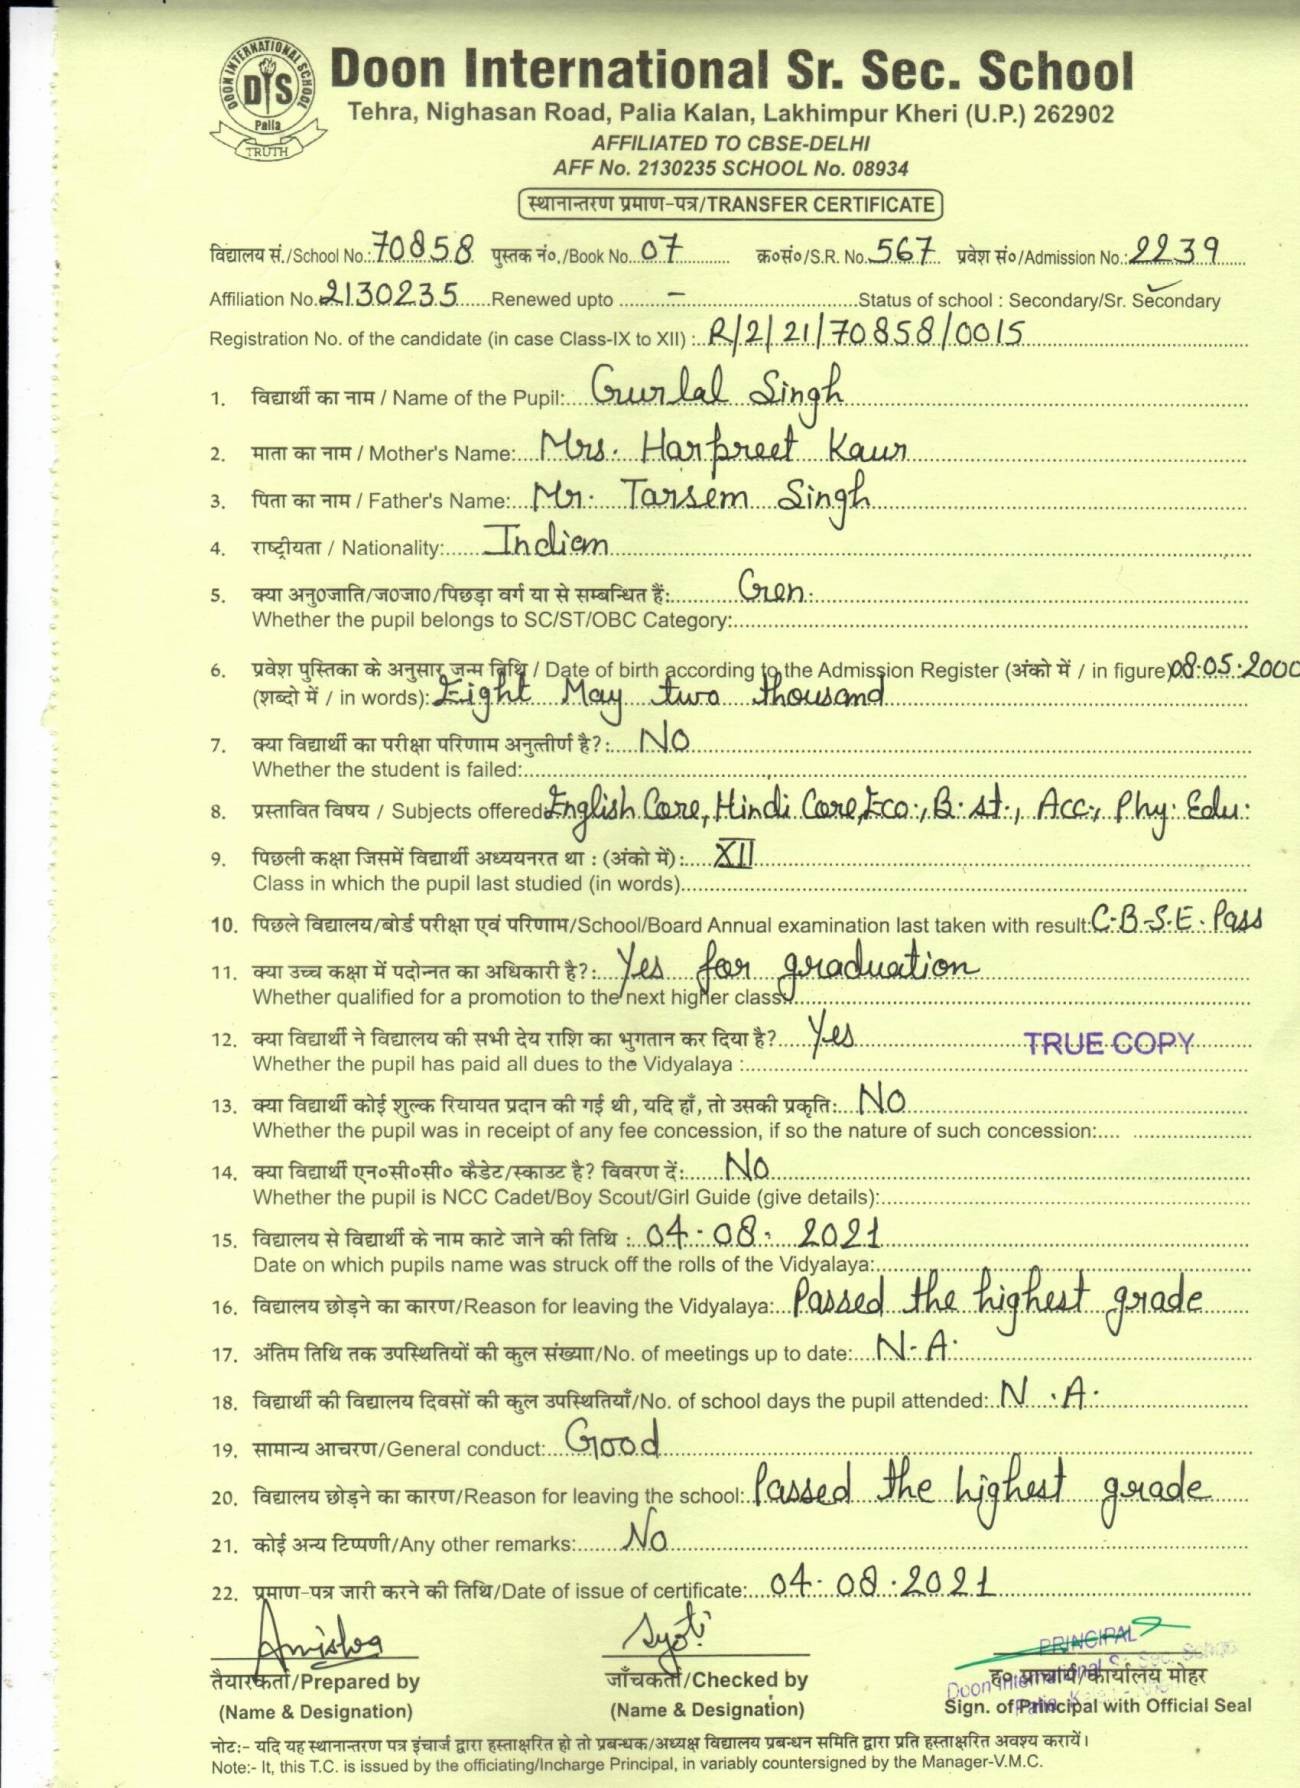 DOON INTERNATIONAL SCHOOL
DIS
Palia
TRUTH
Doon International Sr. Sec. School
Tehra, Nighasan Road, Palia Kalan, Lakhimpur Kheri (U.P.) 262902
AFFILIATED TO CBSE-DELHI
AFF No. 2130235 SCHOOL No. 08934
स्थानान्तरण प्रमाण-पत्र/TRANSFER CERTIFICATE
विद्यालय सं./School No.: 70858 पुस्तक नं०./Book No. 07 क्र०सं०/S.R. No. 567 प्रवेश सं०/Admission No.: 2239
Affiliation No. 2130235 Renewed upto - Status of school : Secondary/Sr. Secondary
Registration No. of the candidate (in case Class-IX to XII) : R/2/21/70858/0015
1. विद्यार्थी का नाम / Name of the Pupil: Gurlal Singh
2. माता का नाम / Mother's Name: Mrs. Harpreet Kaur
3. पिता का नाम / Father's Name: Mr. Tarsem Singh
4. राष्ट्रीयता / Nationality: Indian
5. क्या अनु0जाति/ज0जा0/पिछड़ा वर्ग या से सम्बन्धित हैं: Gen.
Whether the pupil belongs to SC/ST/OBC Category:
6. प्रवेश पुस्तिका के अनुसार जन्म तिथि / Date of birth according to the Admission Register (अंको में / in figure) 08.05.2000
(शब्दो में / in words): Eight May two thousand
7. क्या विद्यार्थी का परीक्षा परिणाम अनुत्तीर्ण है?: NO
Whether the student is failed:
8. प्रस्तावित विषय / Subjects offered: English Core, Hindi Core, Eco., B.st., Acc., Phy. Edu.
9. पिछली कक्षा जिसमें विद्यार्थी अध्ययनरत था : (अंको में) : XII
Class in which the pupil last studied (in words)
10. पिछले विद्यालय/बोर्ड परीक्षा एवं परिणाम/School/Board Annual examination last taken with result: C.B.S.E. Pass
11. क्या उच्च कक्षा में पदोन्नत का अधिकारी है?: Yes for graduation
Whether qualified for a promotion to the next higher class:
12. क्या विद्यार्थी ने विद्यालय की सभी देय राशि का भुगतान कर दिया है? Yes TRUE COPY
Whether the pupil has paid all dues to the Vidyalaya :
13. क्या विद्यार्थी कोई शुल्क रियायत प्रदान की गई थी, यदि हाँ, तो उसकी प्रकृति: NO
Whether the pupil was in receipt of any fee concession, if so the nature of such concession:
14. क्या विद्यार्थी एन०सी०सी० कैडेट/स्काउट है? विवरण दें: No
Whether the pupil is NCC Cadet/Boy Scout/Girl Guide (give details):
15. विद्यालय से विद्यार्थी के नाम काटे जाने की तिथि : 04.08.2021
Date on which pupils name was struck off the rolls of the Vidyalaya:
16. विद्यालय छोड़ने का कारण/Reason for leaving the Vidyalaya: Passed the highest grade
17. अंतिम तिथि तक उपस्थितियों की कुल संख्या/No. of meetings up to date: N.A.
18. विद्यार्थी की विद्यालय दिवसों की कुल उपस्थितियाँ/No. of school days the pupil attended: N.A.
19. सामान्य आचरण/General conduct: Good
20. विद्यालय छोड़ने का कारण/Reason for leaving the school: Passed the highest grade
21. कोई अन्य टिप्पणी/Any other remarks: No
22. प्रमाण-पत्र जारी करने की तिथि/Date of issue of certificate: 04.08.2021
Amisha Jyoti PRINCIPAL
Doon International Sr. Sec. School
तैयारकर्ता/Prepared by जाँचकर्ता/Checked by ह० प्राचार्य/कार्यालय मोहर
(Name & Designation) (Name & Designation) Sign. of Principal with Official Seal
नोटः- यदि यह स्थानान्तरण पत्र इंचार्ज द्वारा हस्ताक्षरित हो तो प्रबन्धक/अध्यक्ष विद्यालय प्रबन्धन समिति द्वारा प्रति हस्ताक्षरित अवश्य करायें।
Note:- It, this T.C. is issued by the officiating/Incharge Principal, in variably countersigned by the Manager-V.M.C.